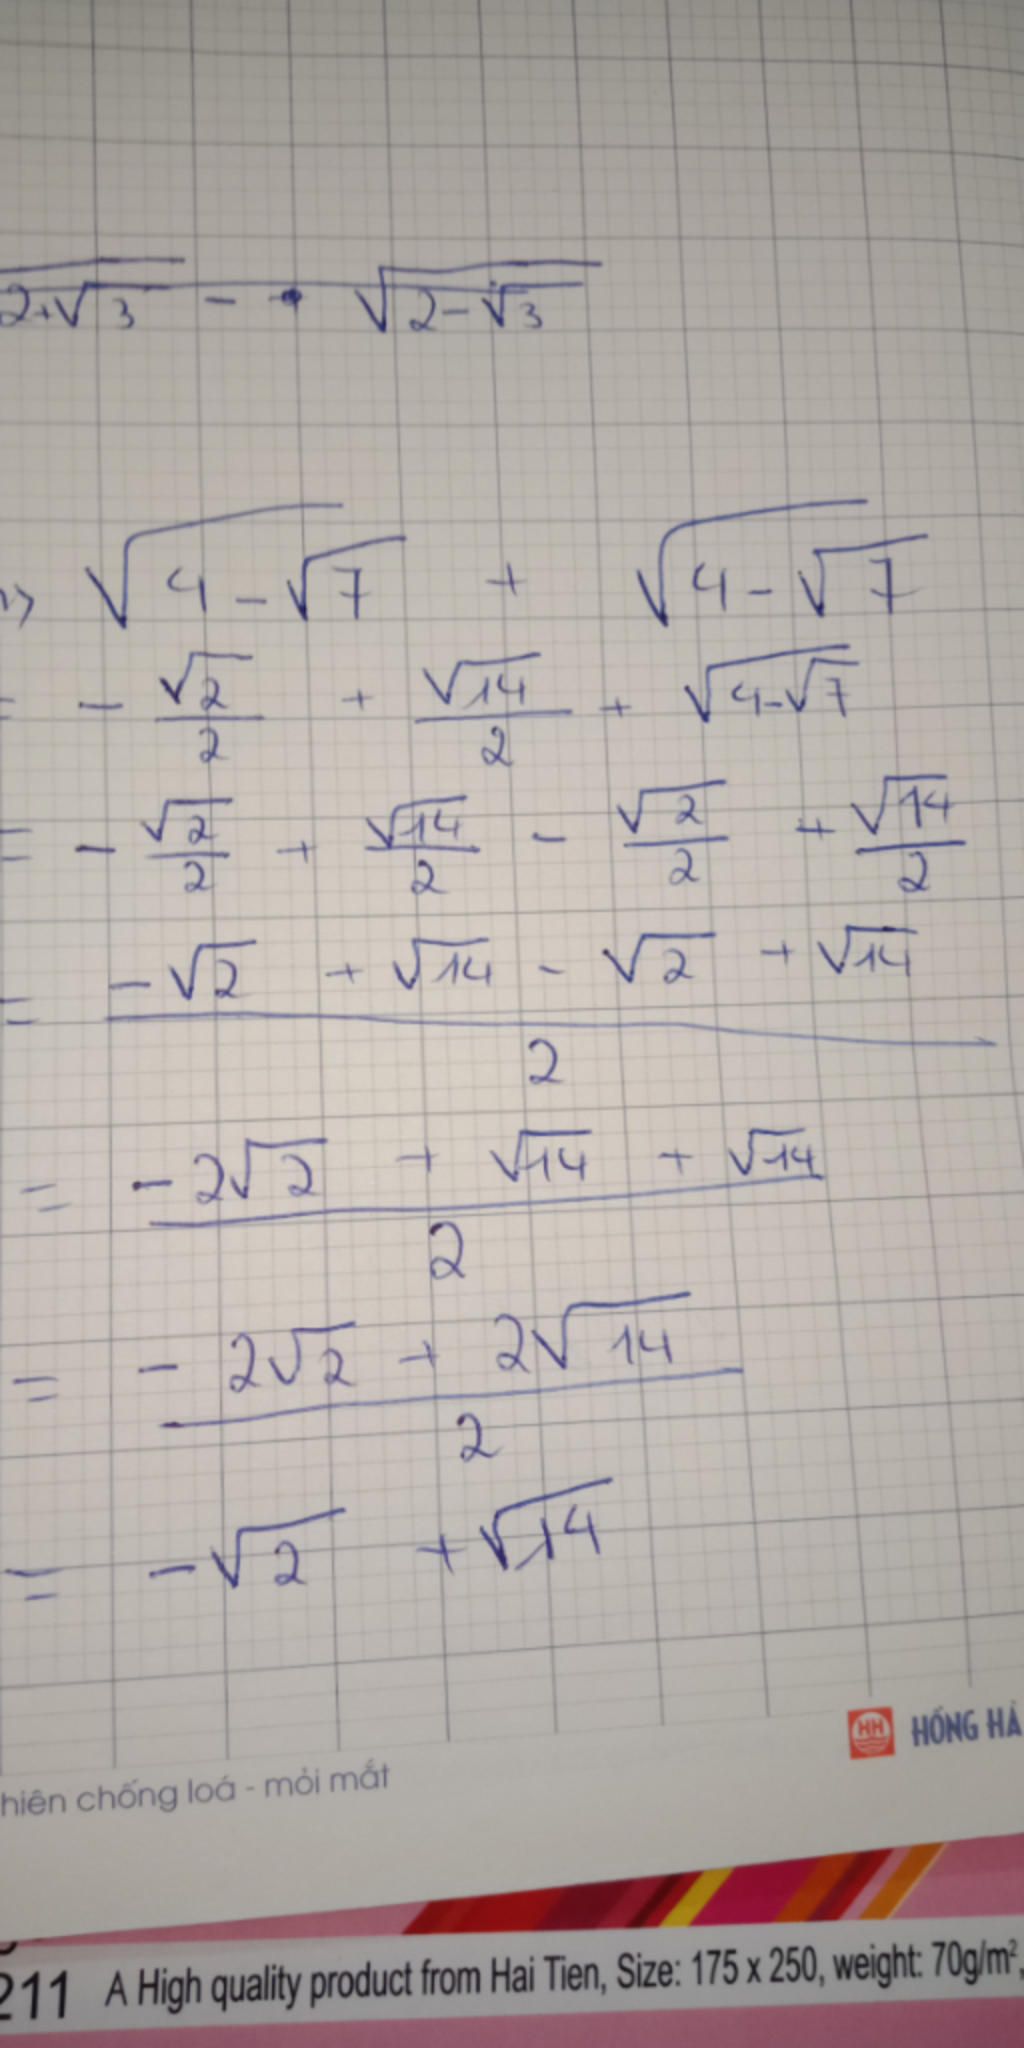 2+√3 - √(2-√3)
√(4-√7) + √(4-√7)
= - √2/2 + √14/2 + √(4-√7)
= - √2/2 + √14/2 - √2/2 + √14/2
= (-√2 + √14 - √2 + √14)/2
= (-2√2 + √14 + √14)/2
= (-2√2 + 2√14)/2
= -√2 + √14
HH HỒNG HÀ
hiên chống loá - mỏi mắt
211 A High quality product from Hai Tien, Size: 175 x 250, weight: 70g/m²,